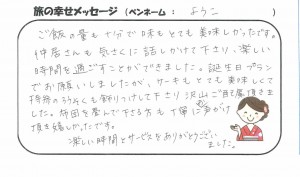 旅の幸せメッセージ (ペンネーム : ようこ )
ご飯の量も十分で味もとても美味しかったです。
仲居さんも気さくに話しかけて下さり、楽しい
時間を過ごすことができました。誕生日プラン
でお願いしましたが、ケーキもとても美味しくて
も飾りつけして下さり沢山ご用意頂きま
した。布団を畳んで下さる方も丁寧に声がけ
頂き嬉しかったです。
楽しい時間とサービスをありがとうござい
ました。